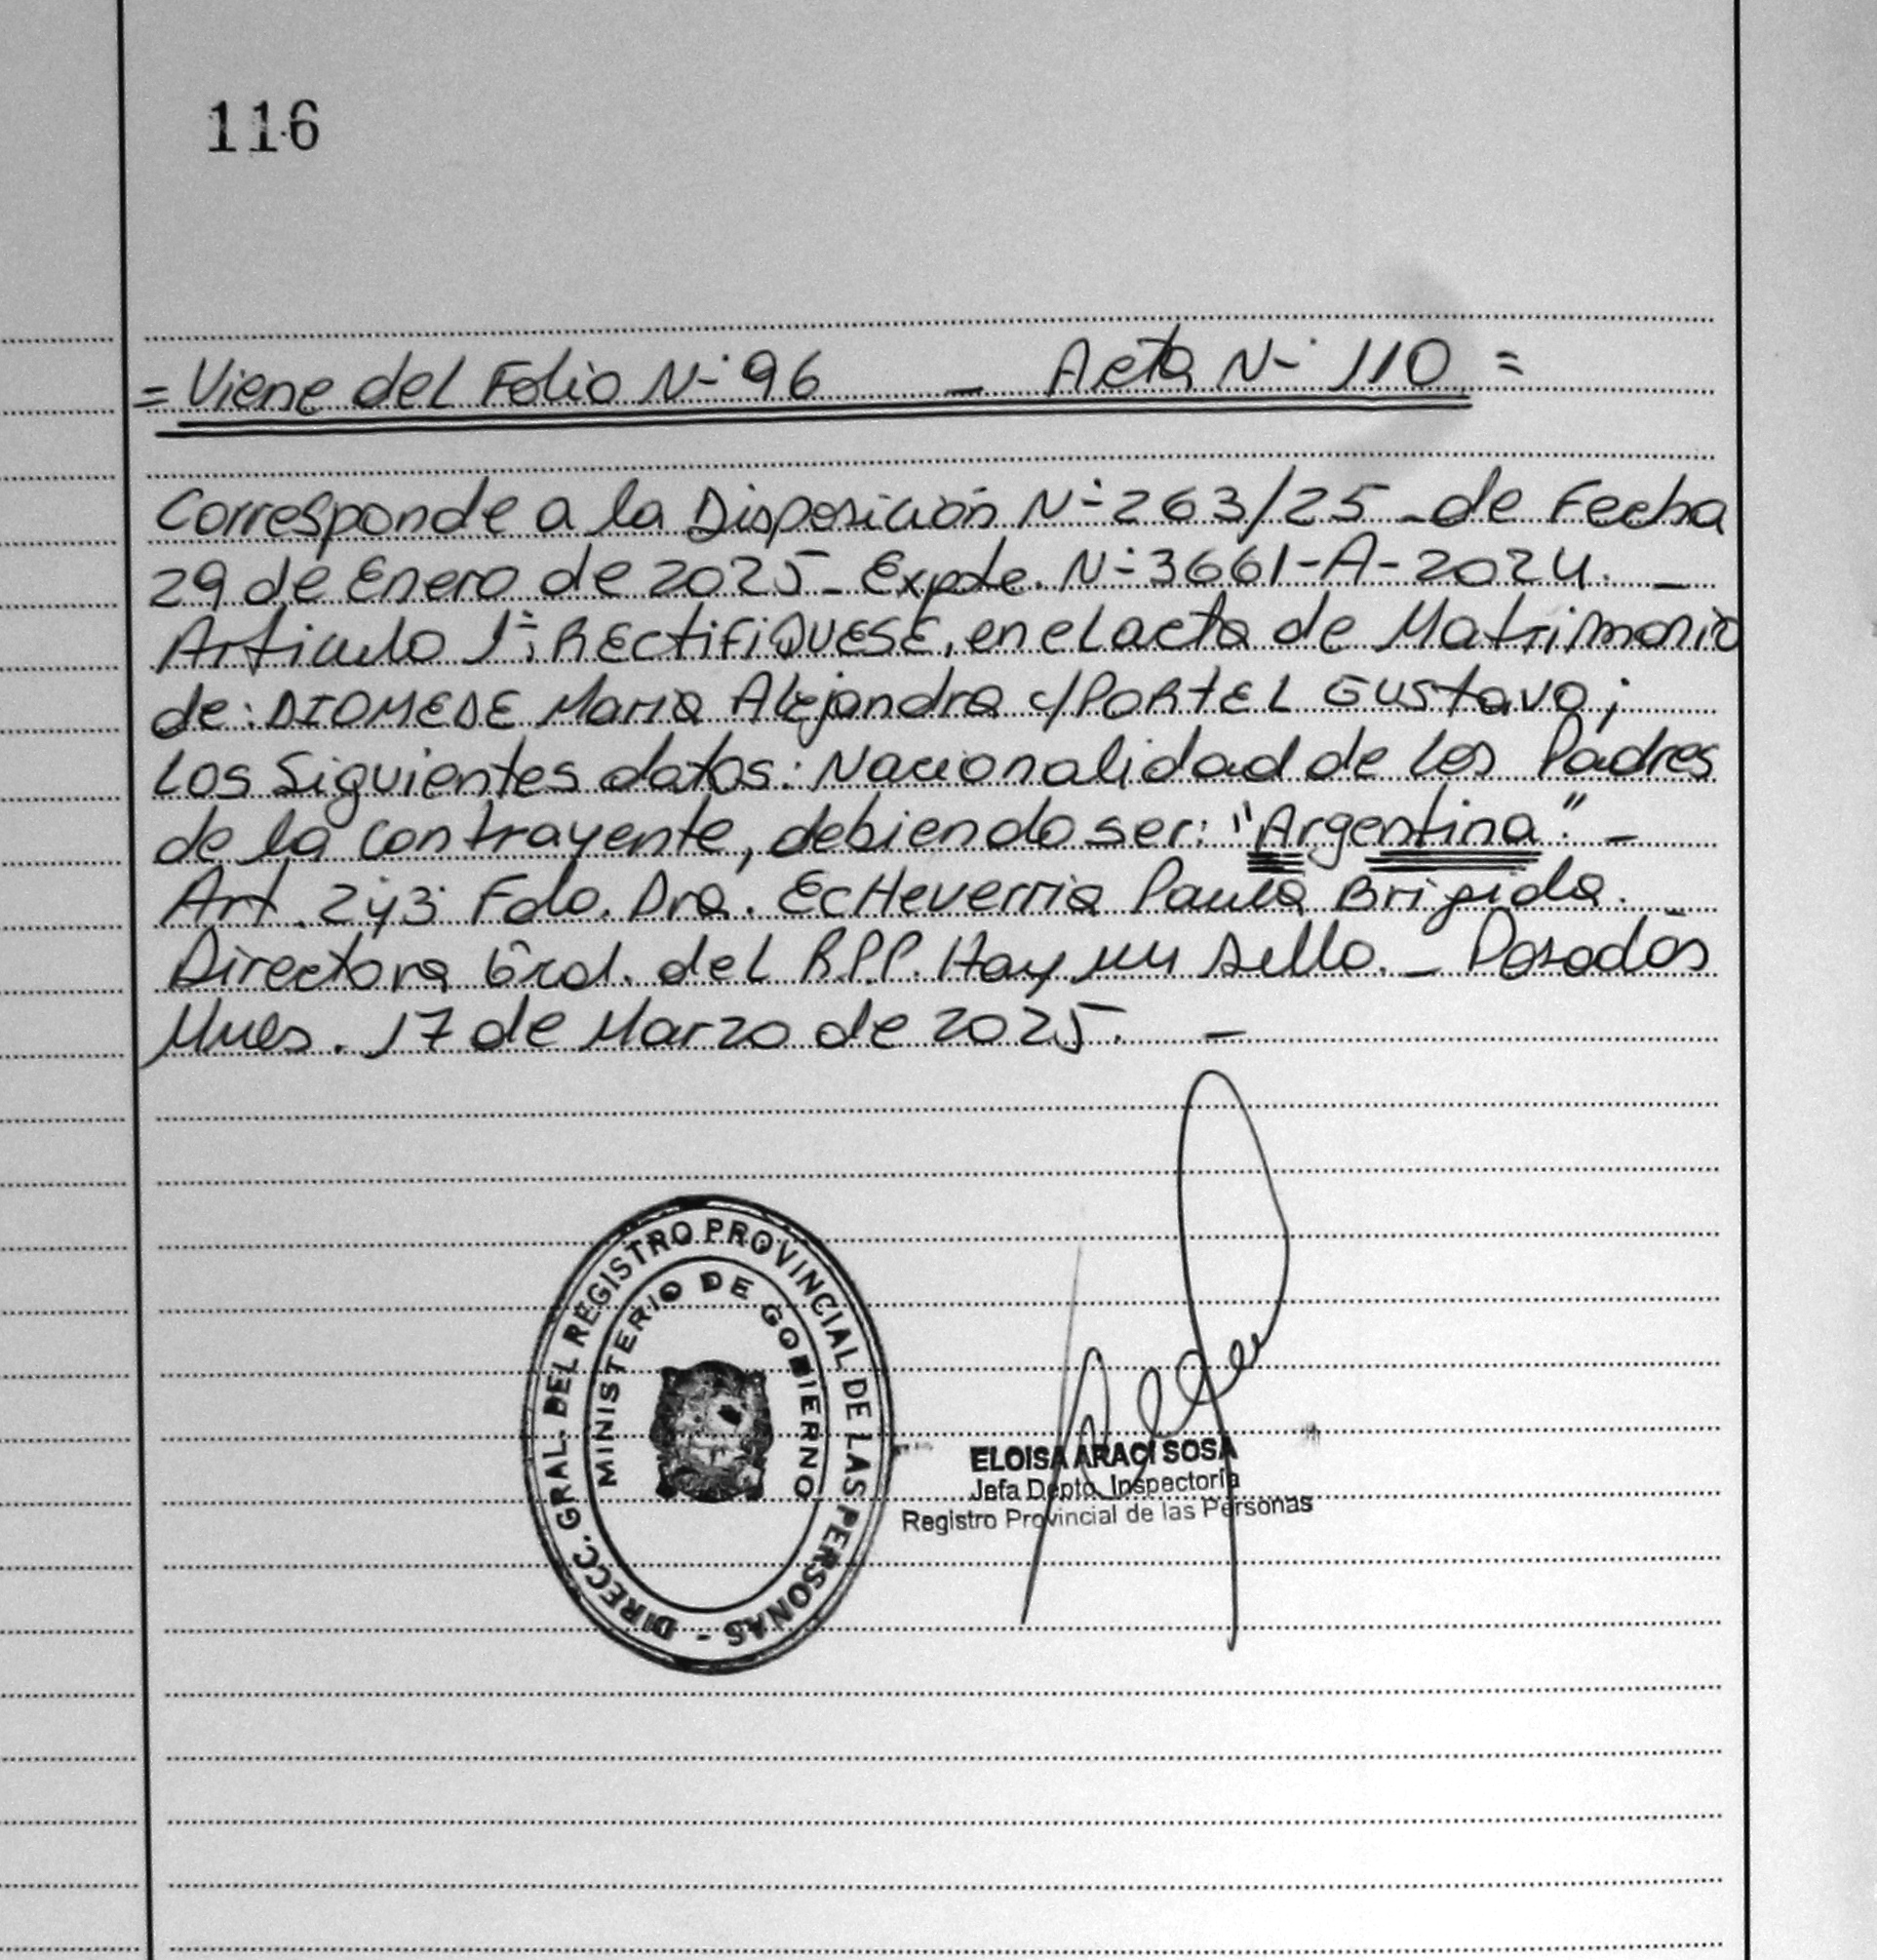 116
= Viene del Folio N° 96 - Acta N° 110 =
Corresponde a la Disposición N° 263/25 - de Fecha
29 de Enero de 2025 - Expte. N° 3661-A-2024. -
Articulo 1°: RECtiFiQUESE, en el acta de Matrimonio
de: DIOMEDE Maria Alejandra c/PORTEL Gustavo;
Los Siguientes datos: Nacionalidad de los Padres
de la contrayente, debiendo ser: "Argentina". -
Art. 2y3 Fdo. Dra. EcHeverria Paula Brigida.
Directora Gral. del RPP. Hay un sello. - Posadas
Mnes. 17 de Marzo de 2025. -
DIRECC. GRAL. DEL REGISTRO PROVINCIAL DE LAS PERSONAS -
MINISTERIO DE GOBIERNO
ELOISA ARACI SOSA
Jefa Depto. Inspectoría
Registro Provincial de las Personas